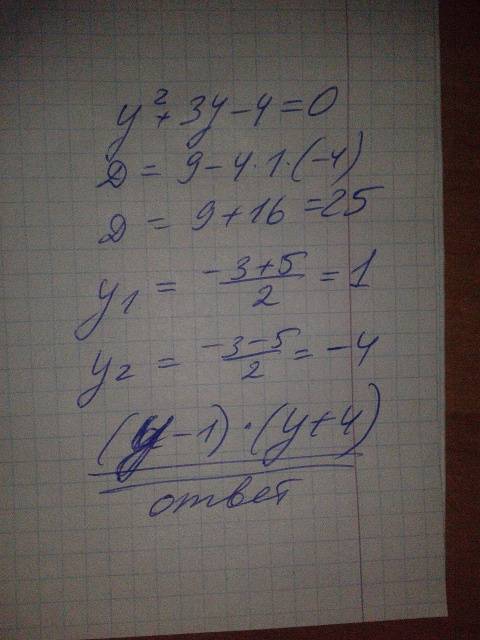 y² + 3y - 4 = 0
D = 9 - 4 · 1 · (-4)
D = 9 + 16 = 25
y₁ = (-3+5)/2 = 1
y₂ = (-3-5)/2 = -4
(y - 1) · (y + 4)
ответ